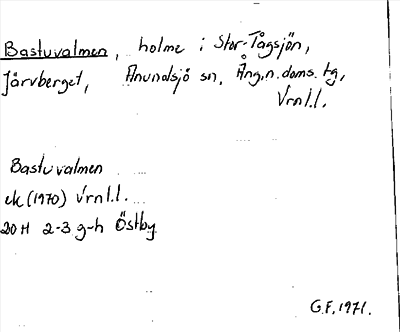 Bastuvalmen, holme i Stor-Tågsjön,
Järvberget, Anundsjö sn, Ång.n.doms.tg,
Vrnl.l.
Bastuvalmen
ek (1970) Vrnl.l.
20H 2-3 g-h Östby
G.F. 1971.